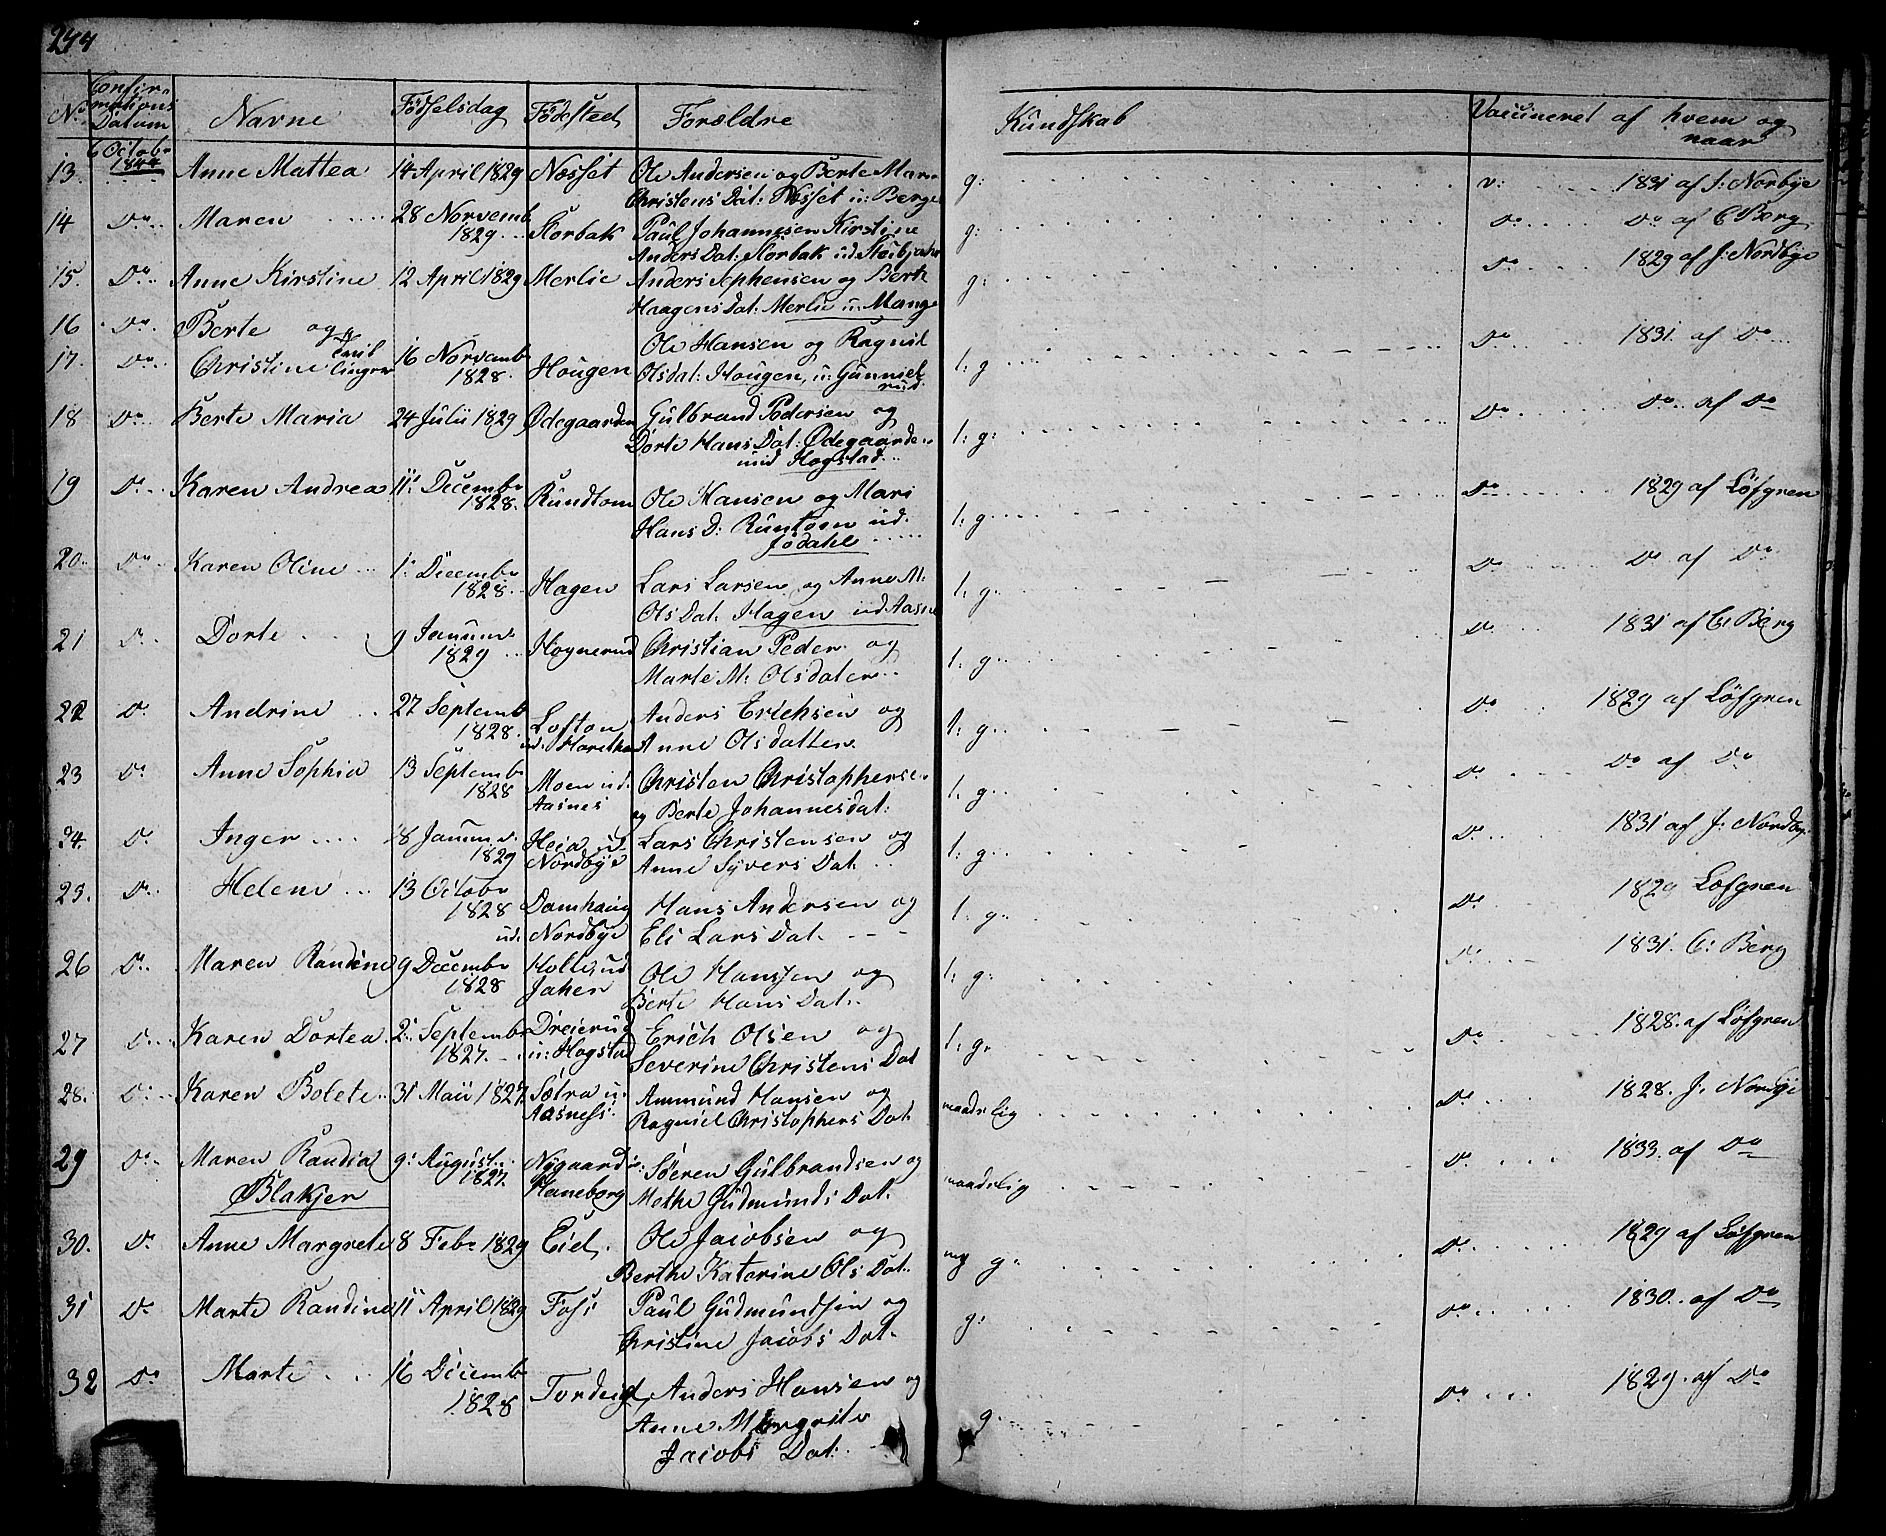 244
No Confirmations Datum Navne Födselsdag Födested Forældre Kundskab Vaccineret af hvem og naar
6 Octobr 1844
13. Anne Mattea 14 April 1829 Næsset Ole Andersen og Berte Maria g: v: 1831 af J: Norbye
Christens Dat: Næsset u: Berge
14 Do Maren 28 Norvemb Storbak Paul Johannesen Kirstine g: Do Do af C Berg
1829 Anders Dat: Storbak ud
15. Do Anne Kirstine 12 April 1829 Merlie Anders Sephensen og Berte g: Do 1829 af J: Nordbye
Haagens Dat: Merlie u: Mange
16 Do Berte og
17. Do Christine Tvillinger 16 Norvemb Hougen Ole Hansen og Ragnil t: g Do 1831. af Do
1828. Olsdat: Hougen, u: Gunnielrud.
18 Do Berte Maria 24 Julii 1829 Ødegaarden Gulbrand Pedersen og t: g: Do Do af Do
Dorte Hans Dat: Ødegaarden
und Hogstad
19 Do Karen Andrea 11 Decembr Rundtom Ole Hansen og Mari t: g: Do 1829 af Löfgren
1828. Hans D: Runtom ud.
Jödahl
20. Do Karen Oline 1 Decembr Hagen Lars Larsen og Anne M: t: g: Do Do af Do
1828. Ols Dat. Hagen ud Aasne
21 Do Dorte 9 Januar Hognerud Christian Peder og t: g: Do 1831 af C: Berg
1829 Marte M: Olsdater
22 Do Andrine 27 Septemb Lofton Anders Erichsen og t: g: Do 1829 af Löfgren
1828. ud. Anne Olsdatter
23 Do Anne Sophia 13 Septembr Moen ud. Christen Christophersen t: g: Do Do af Do
1828 Aasnes og Berte Johannesdat:
24. Do Inger 18 Januar Heia ud Lars Christensen og t: g: Do 1831 af J: Nordby
1829 Nordbye Anne Syvers Dat
25. Do Helene 13 Octobr Damhaug Hans Andersen og t: g: Do 1829 Lofgren
1828 ud. Nordbye Eli Lars Dat.
26 Do Maren Randine 9 Decembr Holte ud Ole Hanssen og t: g: Do 1831. C: Berg
1828 Jaher Berte Hans Dat.
27 Do Karen Dortea 2 Septembr Dreierud Erich Olsen og t: g: Do 1828. af Löfgren
1827. u: Hogstad Severine Christens Dat
28. Do Karen Bolete 31 Maii 1827 Sætra u: Ammund Hansen og maadelig Do 1828. J: Nordbye
Aasness: Ragniel Christophers Dat
29 Do Maren Randia 9: August Nygaard u: Söeren Gulbrandsen og maadelig Do 1833. af Do
1827. Haneborg Methe Gudmunds Dat.
Blakjer
30. Do Anne Margrete 8 Febr 1829 Eid Ole Jacobsen og mg g: Do 1829 af Löfgren
Berthe Katerine Ols Dat.
31 Do Marte Randine 11 April 1829 Foss Paul Gudmundsen og g: Do 1830. af Do
Christine Jacobs Dat.
32 Do Marte 16 Decembr Tordeigt Anders Hansen og g: Do 1829. af Do
1828 Anne Margrete
Jacobs Dat: